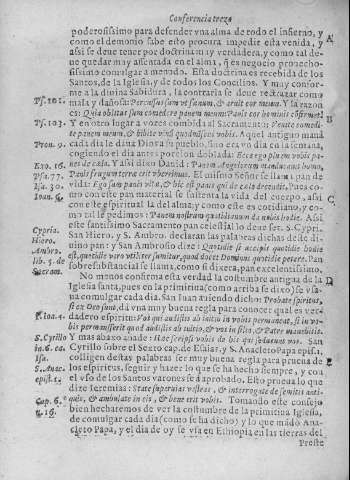 Conferencia treze
poderosissimo para defender vna alma de todo el infierno, y
como el demonio sabe esto procura impedir esta venida, y
assi se deue tener por doctrina muy verdadera, y como tal de-
ue quedar muy assentada en el alma, q̃ es negocio prouecho-
sissimo comulgar a menudo. Esta doctrina es recebida de los
Santos, de la Iglesia, y de todos los Concilios. Y muy confor-
me a la diuina Sabidura, la contraria se deue rectrazar como
Ps. 101. mala y dañosa: Percussus sum vt fœnum, & aruit cor meum. Y la razon
es: Quia oblitus sum comedere panem meum: Panis cor hominis confirmet
Ps. 103. Y en otro lugar a vozes combida al Sacramento: Venite comedi-
te panem meum, & bibite vinũ quod miscui vobis. Aquel antiguo manà
Pron. 9. cada dia le daua Dios a su pueblo, sino era vn dia en la semana,
cogiendo el dia antes por el no doblado: Ecce ego pluam vobis pa-
Exo. 16. nes de cælo. Y assi dize Dauid: Panem Angelorum manducauit homo,
Psa. 77. Panis frugum terræ erit vberrimus. El mismo Señor se llama pan de
Isa. 30. vida: Ego sum panis vitæ, & hic est panis qui de cælo descendit. Pues co-
Ioan. 6. mo con este pan material se sustenta la vida del cuerpo, assi
con este espiritual la del alma; y como este es cotidiano, y co-
mo tal le pedimos: Panem nostrum quotidianum da nobis hodie. Assi
este santissimo Sacramento pan celestial lo deue ser. S. Cypri.
Cypria. San Hiero. y S. Ambro. declaran las palabras dichas deste di-
Hiero. uino pan: y San Ambrosio dize: Quotidie si accipis quotidie hodie
Ambro. est, quotidie vero vtiliter sumitur, quod docet Dominus quotidie petere. Pan
lib. 5. de sobresubstancial se llama, como si dixera, pan excelentissimo.
Sacram. No menos confirma esta verdad la costumbre antigua de la
Iglesia santa, pues en la primitiua (como arriba se dixo) se vsa-
ua comulgar cada dia. San Iuan auiendo dicho: Probate spiritus,
si ex Deo sunt, dà vna muy buena regla para conocer qual es ver-
dadero espiritu: Vos qui audistis ab initio in vobis permaneat, si in vo-
bis permanserit quod audistis ab initio, & vos in filio, & Patre manebitis.
S. Cyrillo Y mas abaxo añade: Hæc scripsi vobis de his qui seducunt vos. San
in. 6. ca. Cyrillo sobre el Sexto cap. de Esaias, y S. Anacleto Papa epis. 1.
Isa. colligen destas palabras ser muy buena regla para prueua de
S. Anac. los espiritus, seguir y hazer lo que se ha hecho siempre, y con
epist. 1. el vso de los Santos varones serà aprobado. Esto procura lo que
dize Ieremias: State super vias vestras, & interrogate de semitis anti-
Cap. 6. quis, & ambulate in eis, & bene erit vobis. Tomando este consejo
bien hecharemos de ver la costumbre de la primitiua Iglesia,
de comulgar cada dia (como se ha dicho) y lo que mãdò Ana-
cleto Papa, y el dia de oy se vsa en Ethiopia en las tierras del
Preste